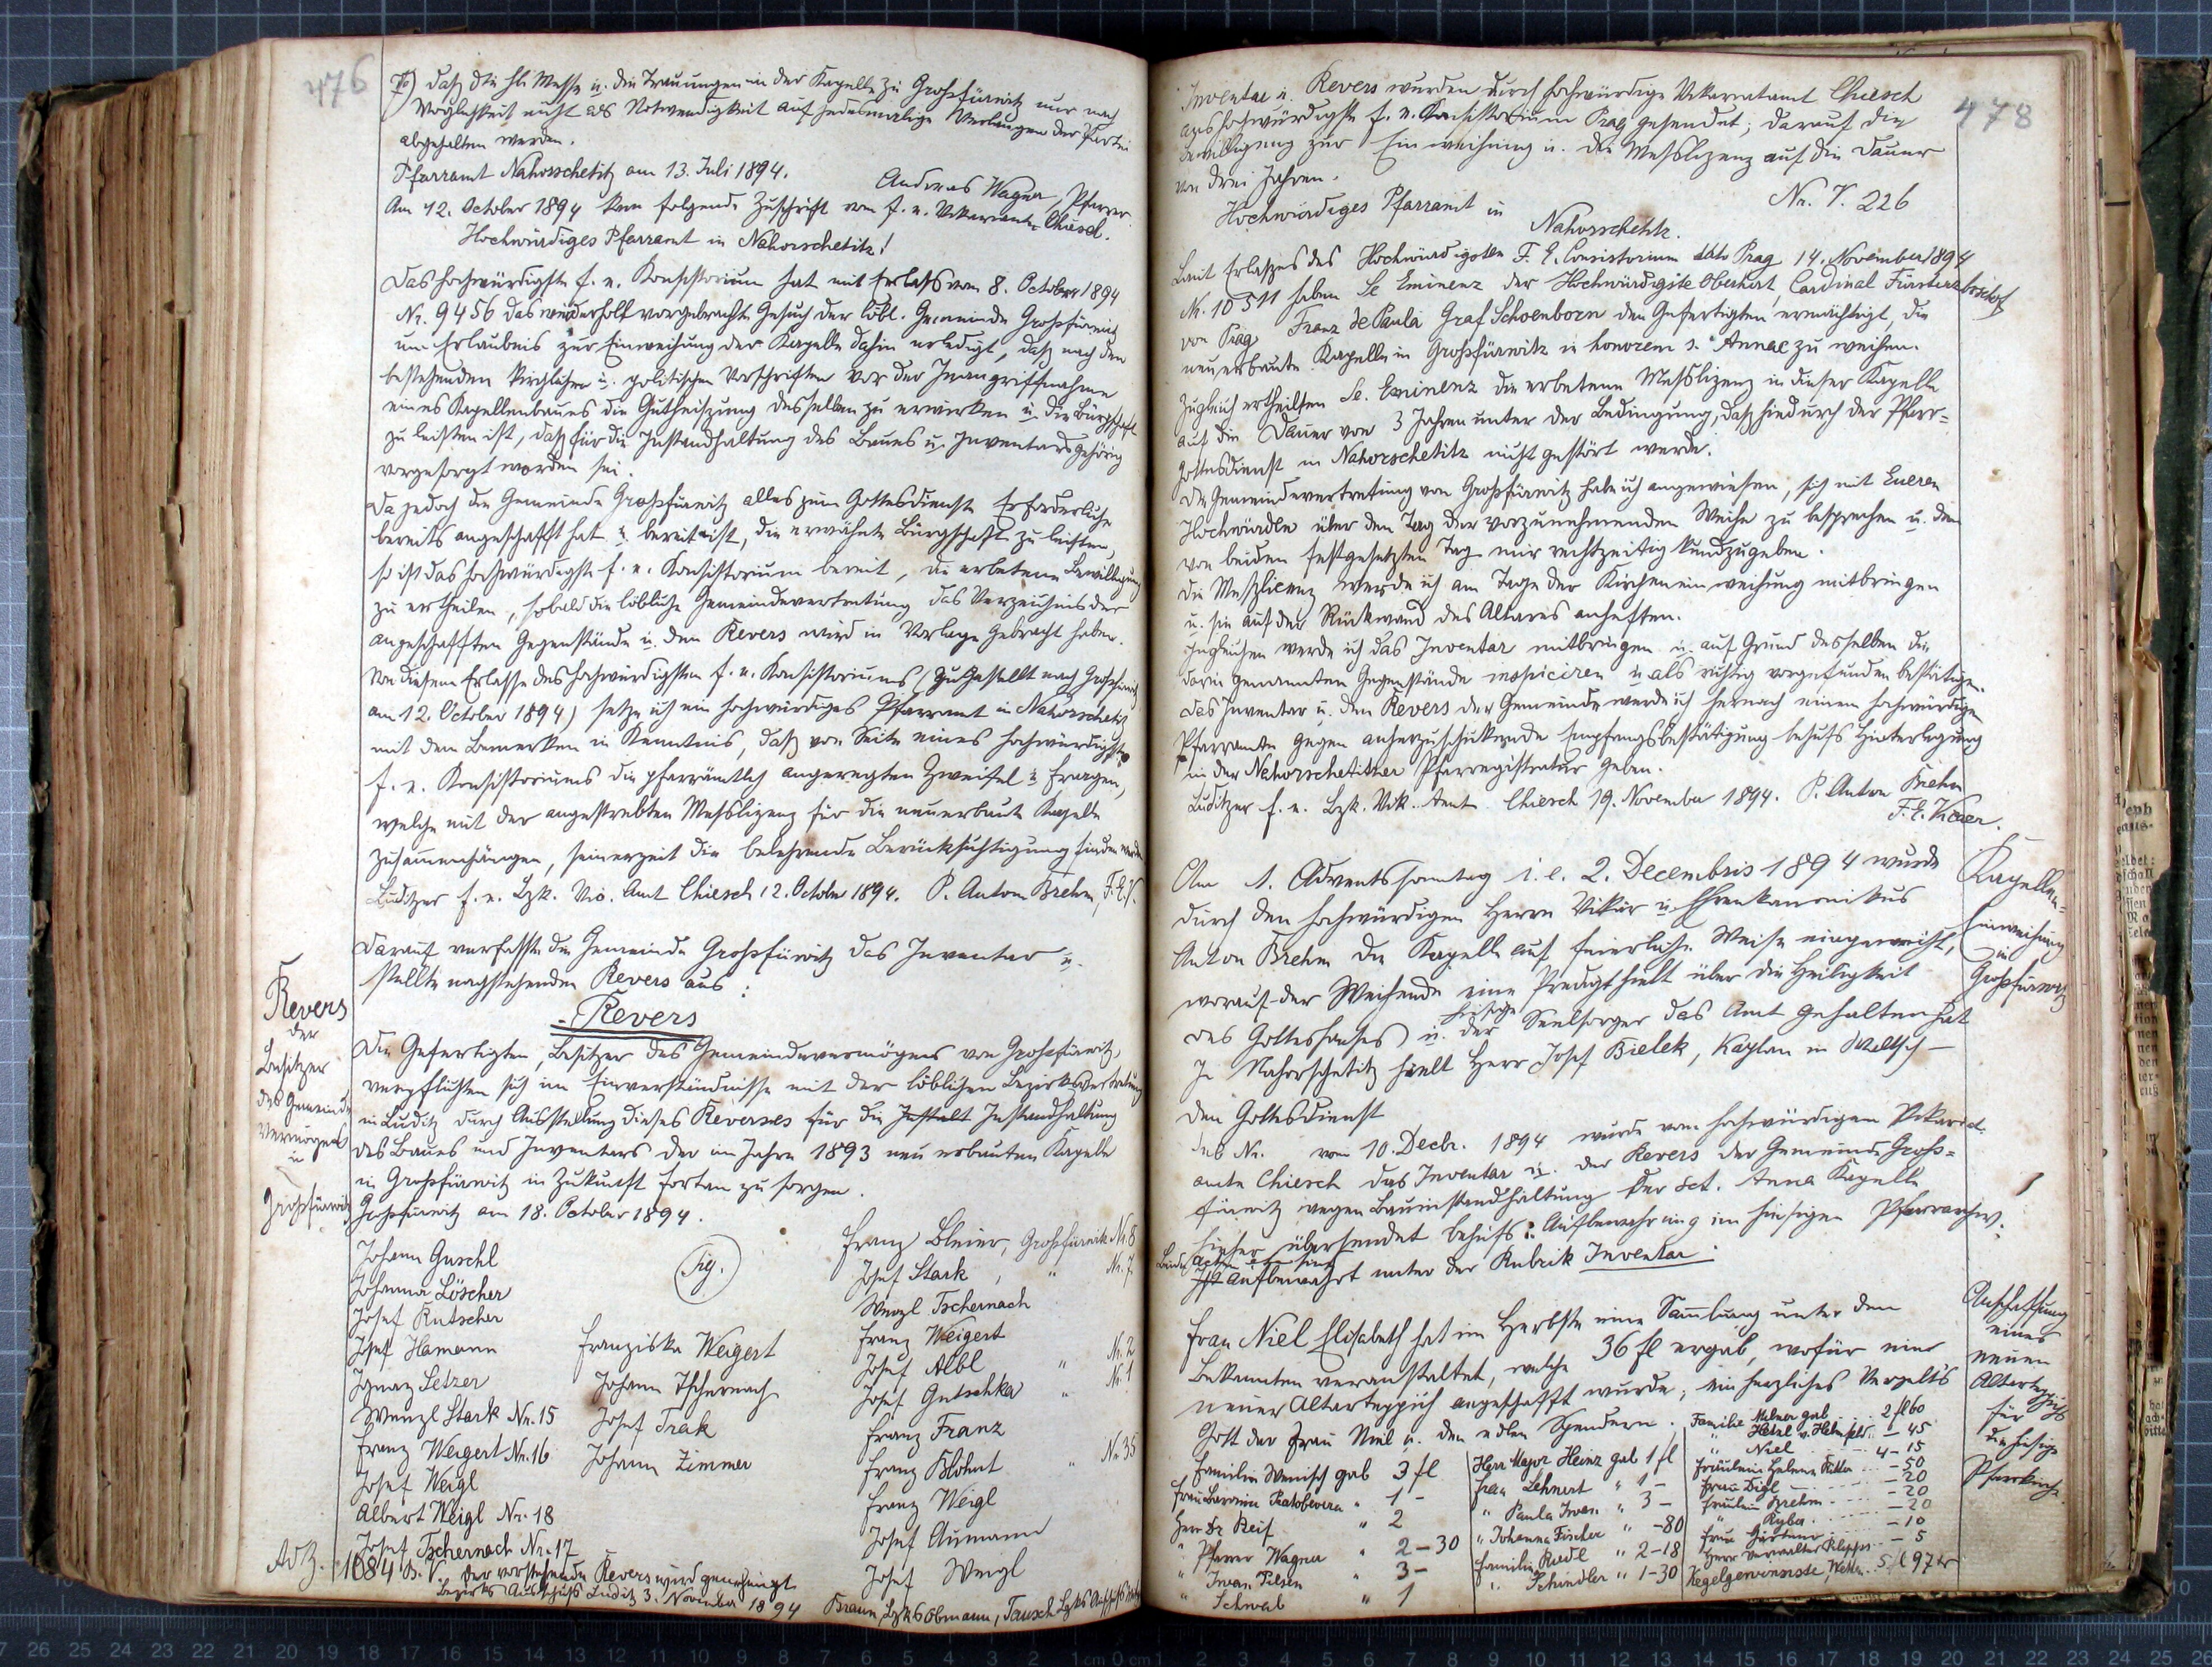 476
7) daß die hl. Messe u. die Trauungen in der Kapelle zu Großfürwitz nur nach
Möglichkeit nicht als Notwendigkeit auf jedesmaliges Verlangen der Partei
abgehalten werden.
Pfarramt Nahorschetitz am 13. Juli 1894. Andreas Wagner, Pfarrer.
Am 12. October 1894 kam folgende Zuschrift vom f. e. Vikariate Chiesch.
Hochwürdiges Pfarramt in Nahorschetitz!
Das hochwürdigste f. e. Konsistorium hat mit Erlaß vom 8. October 1894
Nr. 9456 das wiederholt vorgebrachte Gesuch der löbl. Gemeinde Großfürwitz
um Erlaubnis zur Einweihung der Kapelle dahin erledigt, daß nach den
bestehenden kirchlichen u. politischen Vorschriften vor der Inangriffnahme
eines Kapellenbaues die Gutheißung desselben zu erwirken u. die Bürgschaft
zu leisten ist, daß für die Instandhaltung des Baues u. Inventars gehörig
vorgesorgt worden sei.
Da jedoch die Gemeinde Großfürwitz alles zum Gottesdienste Erforderliche
bereits angeschafft hat u. bereit ist, die erwähnte Bürgschaft zu leisten,
so ist das hochwürdigste f. e. Konsistorium bereit, die erbetene Bewilligung
zu ertheilen, sobald die löbliche Gemeindevertretung das Verzeichnis der
angeschafften Gegenstände u. den Revers wird in Vorlage gebracht haben.
Von diesem Erlasse des hochwürdigsten f. e. Konsistoriums (zugestellt nach Großfürwitz
am 12. October 1894) setze ich ein hochwürdiges Pfarramt in Nahorschetitz
mit dem Bemerken in Kenntnis, daß von Seite eines hochwürdigsten
f. e. Konsistoriums die pfarrämtlich angeregten Zweifel u. Fragen,
welche mit der angestrebten Meßlizenz für die neuerbaute Kapelle
zusammenhängen, seinerzeit die belehrende Berücksichtigung finden werden
Luditzer f. e. Bzk. Vic. Amt Chiesch 12. October 1894. P. Anton Brehm, F.E.V.
Darauf verfaßte die Gemeinde Großfürwitz das Inventar u.
stellte nachstehenden Revers aus:
Revers
der
Besitzer
des Gemeinde
Vermögens
in
Großfürwitz
Revers
Die Gefertigten, Besitzer des Gemeindevermögens von Großfürwitz,
verpflichten sich im Einverständnisse mit der löblichen Bezirksvertretung
in Luditz durch Ausstellung dieses Reverses für die Instalt Instandhaltung
des Baues und Inventars der im Jahre 1893 neu erbauten Kapelle
in Großfürwitz in Zukunft fortan zu sorgen.
Großfürwitz am 18. October 1894.
Johann Guschl Sig. Franz Bleier, Großfürwitz Nr. 8
Johanna Löscher Josef Stark, " Nr. 7
Josef Kutscher Wenzl Tschernach
Josef Hamann Franziska Weigert Franz Weigert
Ignaz Setzer Johann Tschernach Josef Albl " Nr. 2
Wenzl Stark Nr. 15 Josef Trak Josef Gutschka " Nr. 1
Franz Weigert Nr. 16 Johann Zimmer Franz Franz
Josef Weigl Franz Blohnt " Nr 35
Albert Weigl Nr. 18 Franz Weigl
Josef Tschernach Nr. 17 Josef Aumann
AdZ. 1084 B. V. Der vorstehende Revers wird genehmigt Josef Weigl
Bezirks Ausschuß Luditz 3. November 1894 Braun, Bzksobmann, Tausch Bzks Ausschuß
478
Inventar u. Revers wurden durch hochwürdige Vikariatamt Chiesch
ans hochwürdigste f. e. Konsistorium Prag gesendet; darauf die
Bewilligung zur Einweihung u. die Meßlizenz auf die Dauer
von drei Jahren.
Hochwürdiges Pfarramt in Nahorschetitz. Nr. V. 226
Laut Erlaßes des Hochwürdigsten F. E. Consistorium ddto Prag 14. November 1894
Nr. 10511 haben Se Eminenz der Hochwürdigste Oberhirt, Cardinal Fürsterzbischof
von Prag Franz de Paula Graf Schoenborn den Gefertigten ermächtigt, die
neuerbaute Kapelle in Großfürwitz in honorem s. Annae zu weihen.
Zugleich ertheilten Se. Eminenz die erbetene Meßlizenz in dieser Kapelle
auf die Dauer von 3 Jahren unter der Bedingung, daß hiedurch der Pfarr-
gottesdienst in Nahorschetitz nicht gestört werde.
Die Gemeindevertretung von Großfürwitz habe ich angewiesen, sich mit Eueren
Hochwürden über den Tag der vorzunehmenden Weihe zu besprechen u. den
von beiden festgesetzten Tag mir rechtzeitig kundzugeben.
Die Meßlicenz werde ich am Tage der Kircheneinweihung mitbringen
u. sie auf der Rückwand des Altares anheften.
Ingleichen werde ich das Inventar mitbringen u. auf Grund desselben die
darin genannten Gegenstände inspiciren u. als richtig vorgefunden bestätigen.
Das Inventar u. den Revers der Gemeinde werde ich hernach einem hochwürdigen
Pfarramte gegen anherzuschickende Empfangsbestätigung behufs Hinterlegung
in der Nahorschetitzer Pfarregistratur geben.
Luditzer f. e. Bzk. Vik. Amt Chiesch 19. November 1894. P. Anton Brehm
F. E. Vicar.
Am 1. Adventssonntag i. e. 2. Decembris 1894 wurde
durch den hochwürdigen Herrn Vikär u. Ehrenkanonikus
Anton Brehm die Kapelle auf feierliche Weise eingeweiht,
worauf der Weihende eine Predigt hielt über die Heiligkeit
des Gotteshauses u. der hiesige Seelsorger das Amt gehalten hat
In Nahorschetitz hielt Herr Josef Bielek, Kaplan in Waltsch –
den Gottesdienst
Kapellen-
Einweihung
in
Großfürwitz
Sub Nr. vom 10. Decbr. 1894 wurde vom hochwürdigen Vikariat-
amte Chiesch das Inventar u. der Revers der Gemeinde Groß-
fürwitz wegen Bauinstandhaltung der Sct. Anna Kapelle
hieher übersendet behufs Aufbewahrung im hiesigen Pfarrarchiv.
aufbewahrt unter der Rubrik Inventar.
Frau Niel Elisabeth hat im Herbste eine Samlung unter den
Bekannten veranstaltet, welche 36 fl ergab, wofür ein
neuer Altarteppich angeschafft wurde; ein herzliches Vergelts
Gott der Frau Niel u. den edlen Spendern.
Anschaffung
eines
neuen
Altarteppichs
für
die hiesige
Pfarrkirche.
Familie Wenisch gab 3 fl
Frau Baronin Pratobevera " 1 –
Herr Dr Reif " 2
" Pfarrer Wagner " 2–30
" Iwan Pilsen " 3–
" Schwab " 1
Herr Major Heinz gab 1 fl
Frau Lehnert " 1 –
" Paula Iwan " 3 –
" Johanna Fischer " –80
Familie Riedl " 2–18
" Schindler " 1–30
Familie Melner gab 2 fl 60
" Hetzl v. Helmfeld 1 45
" Niel 4–15
Fräulein Helene Ritter –50
Frau Digl –20
Fräulein Brehm –20
" Ryba –20
Frau Gärtner –10
Herr Verwalter Klepps –5
Kegelgewinnste, Wetten 5 fl 97 kr